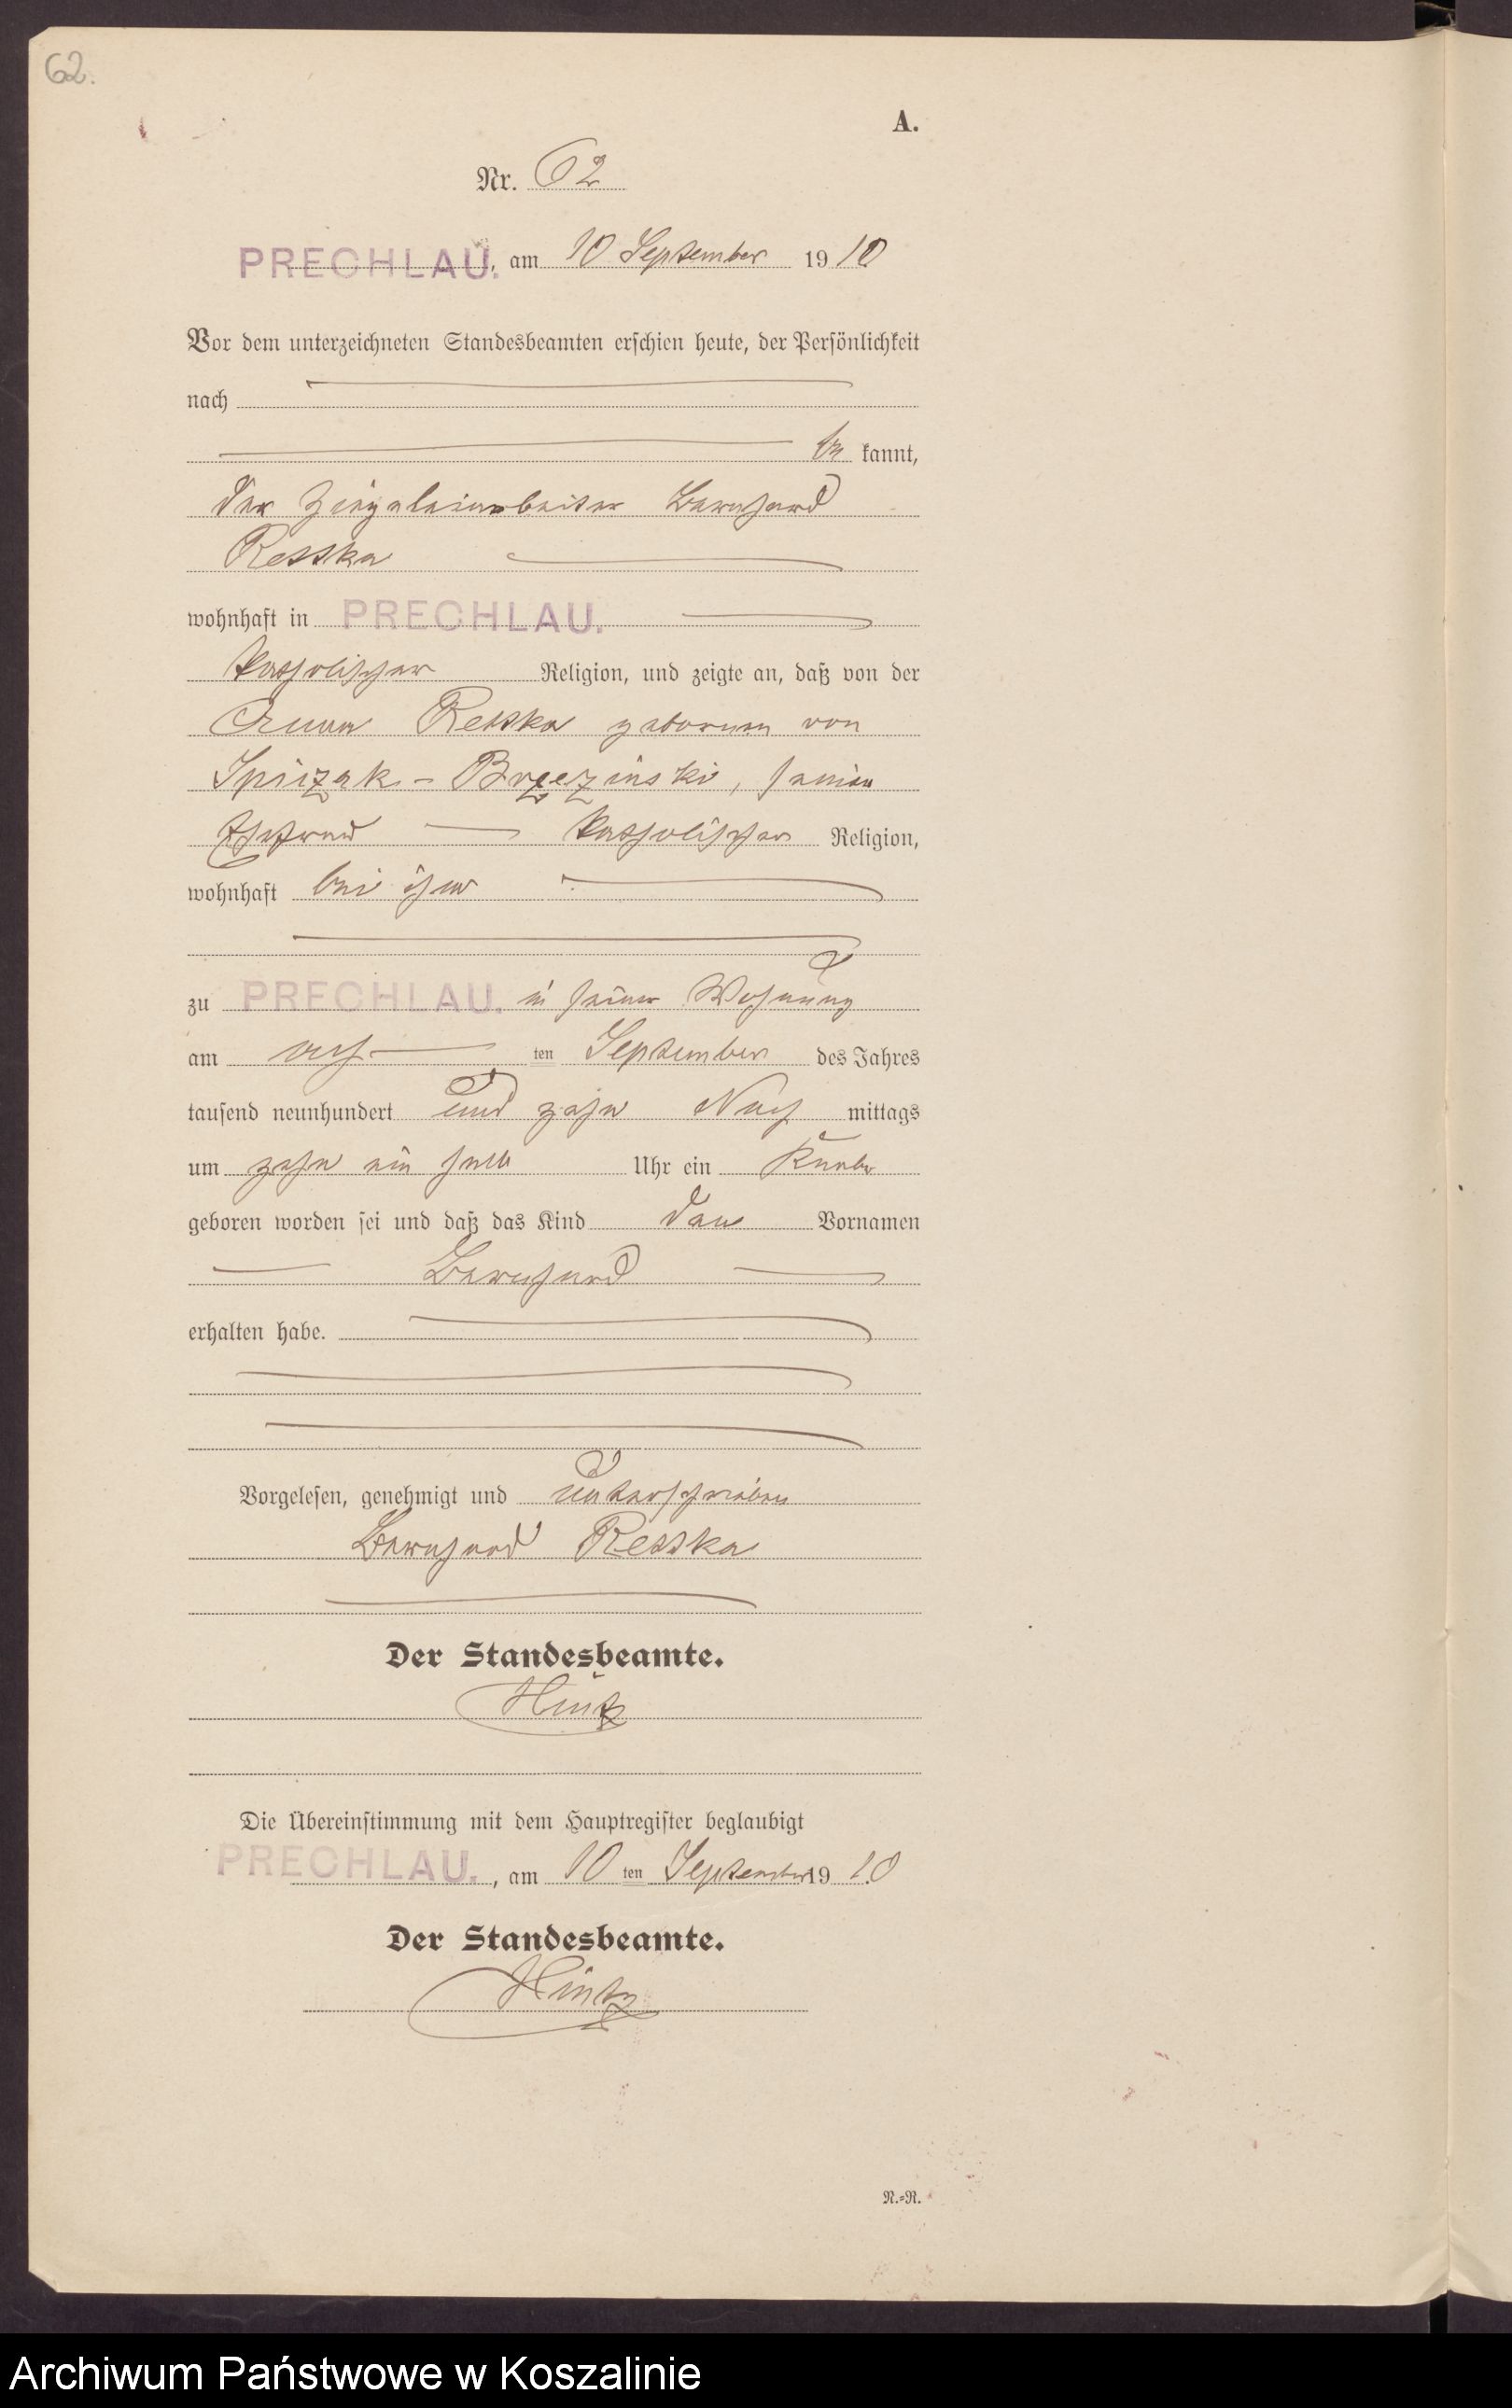 62.
A.
Nr. 62
PRECHLAU., am 10 September 1910
Vor dem unterzeichneten Standesbeamten erschien heute, der Persönlichkeit
nach
be kannt,
der Ziegeleiarbeiter Bernhard
Resska
wohnhaft in PRECHLAU.
katholischer Religion, und zeigte an, daß von der
Anna Resska geborenen von
Spiczak-Brzezinski, seiner
Ehefrau katholischer Religion,
wohnhaft bei ihm
zu PRECHLAU. in seiner Wohnung
am acht ten September des Jahres
tausend neunhundert und zehn Nach mittags
um zehn ein halb Uhr ein Knabe
geboren worden sei und daß das Kind den Vornamen
Bernhard
erhalten habe.
Vorgelesen, genehmigt und unterschrieben
Bernhard Resska
Der Standesbeamte.
Hintz
Die Übereinstimmung mit dem Hauptregister beglaubigt
PRECHLAU., am 10 ten September 1910
Der Standesbeamte.
Hintz
N.=R.
Archiwum Państwowe w Koszalinie